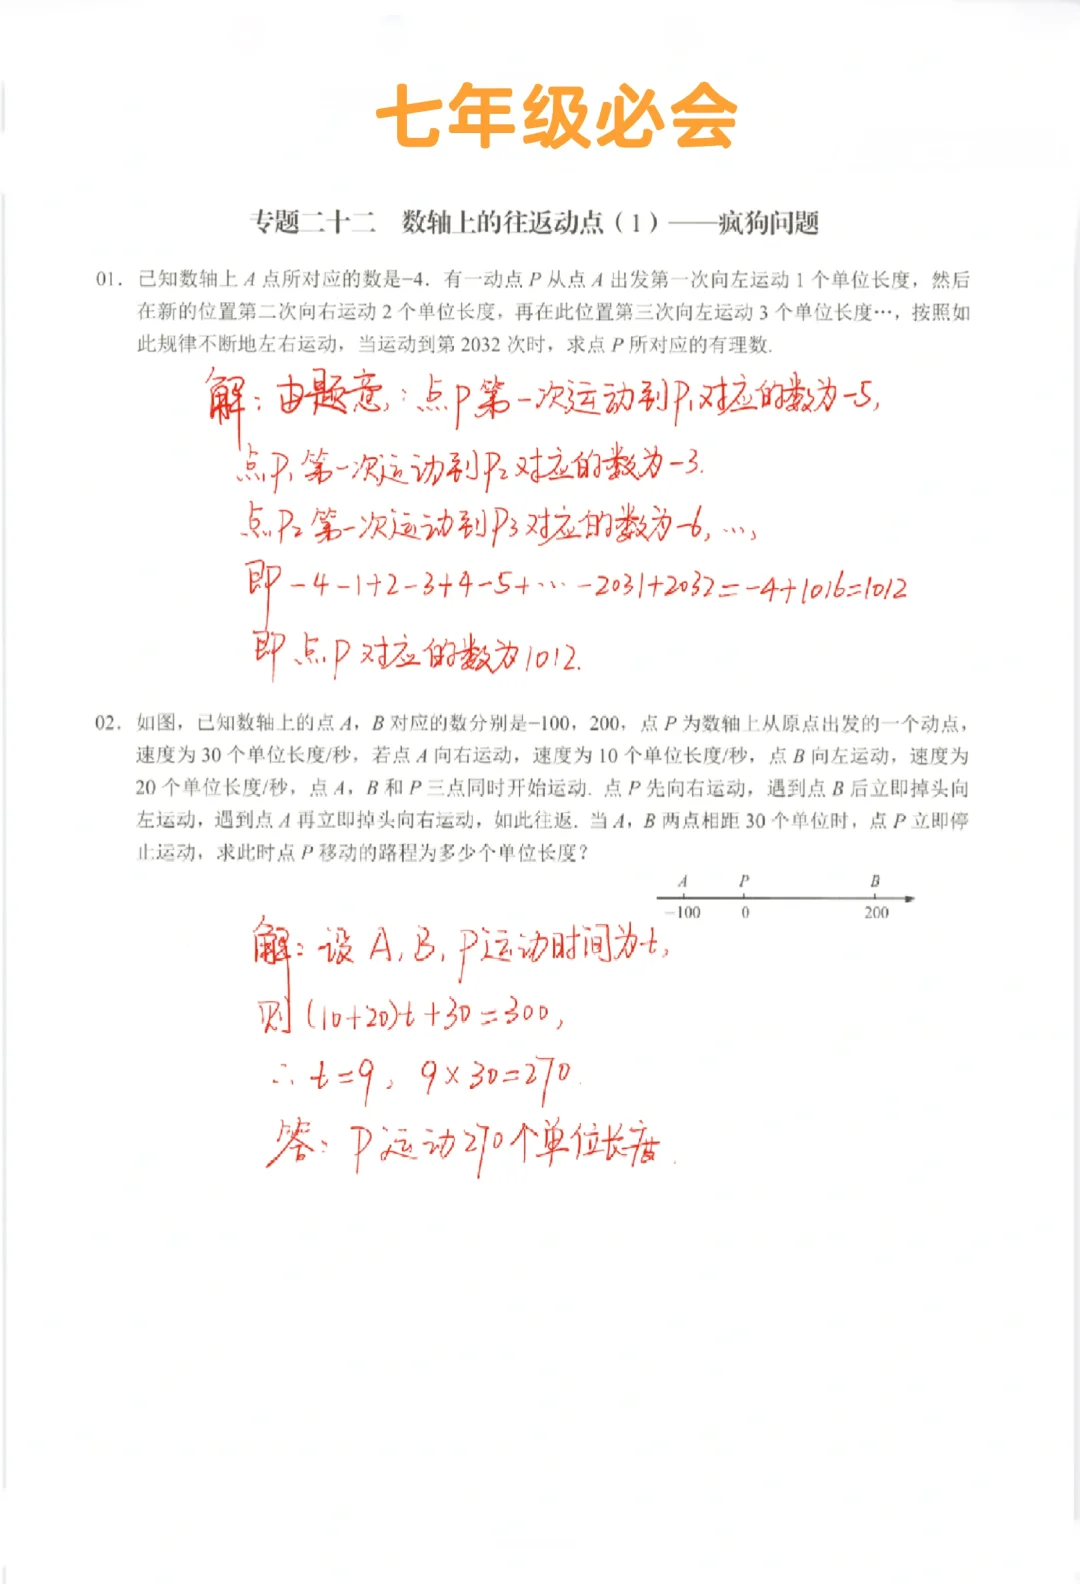 七年级必会
专题二十二 数轴上的往返动点（1）——疯狗问题
01. 已知数轴上 A 点所对应的数是−4. 有一动点 P 从点 A 出发第一次向左运动 1 个单位长度，然后
在新的位置第二次向右运动 2 个单位长度，再在此位置第三次向左运动 3 个单位长度…，按照如
此规律不断地左右运动，当运动到第 2032 次时，求点 P 所对应的有理数.
解：由题意，：点P第一次运动到P₁对应的数为-5,
点P₁第一次运动到P₂对应的数为-3.
点P₂第一次运动到P₃对应的数为-6, …,
即 -4-1+2-3+4-5+…-2031+2032=-4+1016=1012
即点P对应的数为1012.
02. 如图，已知数轴上的点 A，B 对应的数分别是−100，200，点 P 为数轴上从原点出发的一个动点，
速度为 30 个单位长度/秒，若点 A 向右运动，速度为 10 个单位长度/秒，点 B 向左运动，速度为
20 个单位长度/秒，点 A，B 和 P 三点同时开始运动. 点 P 先向右运动，遇到点 B 后立即掉头向
左运动，遇到点 A 再立即掉头向右运动，如此往返. 当 A，B 两点相距 30 个单位时，点 P 立即停
止运动，求此时点 P 移动的路程为多少个单位长度？
A P B
−100 0 200
解：设 A, B, P运动时间为t,
则 (10+20)t+30=300,
∴ t=9, 9×30=270.
答：P运动270个单位长度.